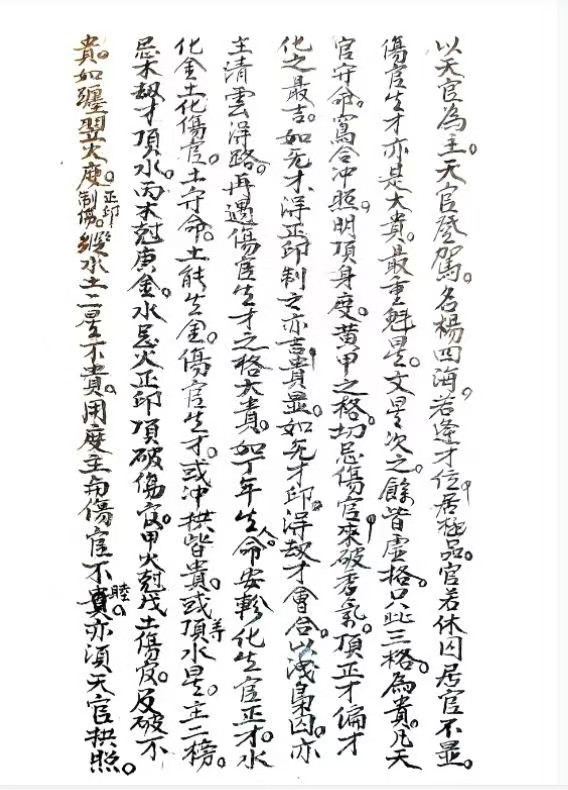 以天官為主。天官登駕。名楊四海。若逢才位。居極品。官若休囚居官不显。
傷官生才亦是大貴。最重魁星。文星次之。餘皆虛格。只此三格為貴。凡天
官守命。寫合冲照。明頂身度。黄甲之格。切忌傷官來破秀氣。頂正才偏才
化之最吉。如无才得正印制之亦吉貴显。如无才印。得劫才會合。以洩梟囚。亦
主清雲得路。再遇傷官生才之格大貴。如丁年生人。命安軫化生官正才。水
化金土化傷官。土守命。土能生金。傷官生才。或冲拱皆貴。或頂水孛星。主二榜。
忌木劫才頂水。丙木尅庚金。水忌火正印頂破傷官。甲火尅戊土傷官。反破不
貴。如纏翌火度。正印制傷。縱水土二星不貴。用度主与傷官不睦。亦須天官拱照。